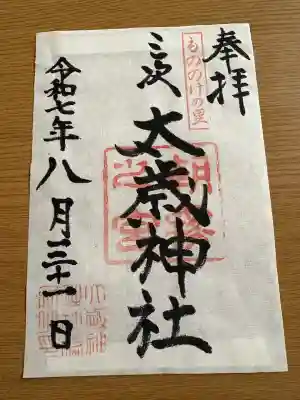 奉拝
もののけの里
三次 太歳神社
令和七年八月三十一日